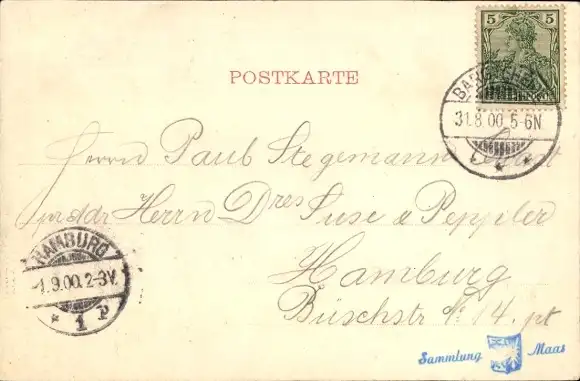 5 5
POSTKARTE
31.8.00.5-6N
Herrn Paul Stegemann
Herrn Dres Suse & Peppler
HAMBURG
1.9.00.2-3V.
* 1 P
Hamburg
Büschstr No: 14. pt
Sammlung Maas